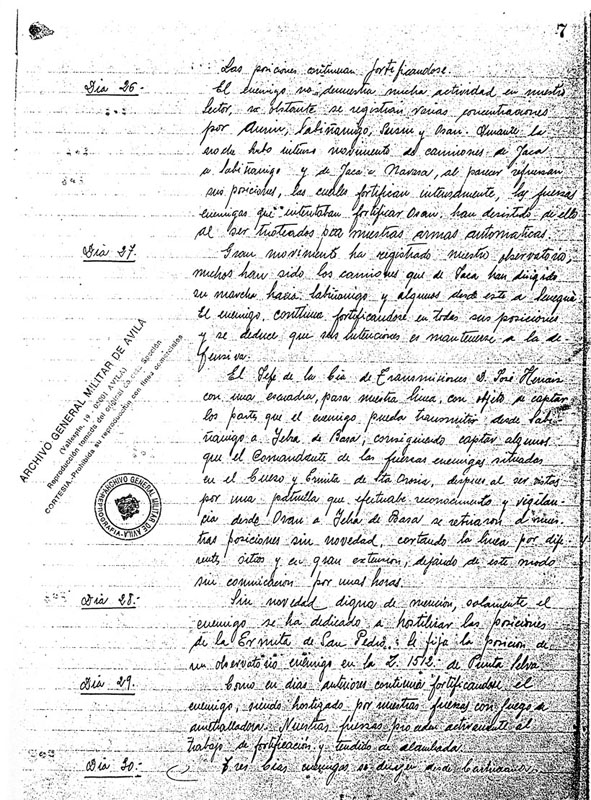 7
Las posiciones continuan fortificandose.
Dia 26.- El enemigo no demuestra mucha actividad en nuestro
sector, no obstante se registran varias concentraciones
por Aurin, Sabiñanigo, Sasin y Osan. Durante la
noche hubo intenso movimiento de camiones de Jaca
a Sabiñanigo y de Jaca a Navasa, al parecer refuerzan
sus posiciones, las cuales fortifican intensamente, las fuerzas
enemigas que intentaban fortificar Osan han desistido de ello
al ser tiroteados por nuestras armas automaticas.
Dia 27. Gran movimiento ha registrado nuestro observatorio,
muchos han sido los camiones que de Jaca han dirigido
su marcha hacia Sabiñanigo y algunos desde este a
El enemigo, continua fortificandose en todas sus posiciones
y se deduce que sus intenciones es mantenerse a la de-
fensiva.
El Jefe de la Cia de Transmisiones D. José
con una escuadra, pasa nuestra linea, con objeto de captar
los partes que el enemigo pueda transmitir desde Sabi-
ñanigo a Yebra de Basa, consiguiendo captar algunos
que el Comandante de las fuerzas enemigas situadas
en el Cueso y Ermita de Sta Orosia, despues al ser vistos
por una patrulla que efectuaba reconocimiento y vigilan-
cia desde Osan a Yebra de Basa se retiraron a nues-
tras posiciones sin novedad, cortando la linea por dife-
rentes sitios y en gran extension, dejando de este modo
sin comunicacion por unas horas.
Dia 28.- Sin novedad digna de mención, solamente el
enemigo se ha dedicado a hostilizar las posiciones
de la Ermita de San Pedro. Se fija la posicion de
un observatorio enemigo en la Z. 1512 de Punta Selva
Dia 29. Como en dias anteriores continua fortificandose el
enemigo, siendo hostigado por nuestras fuerzas con fuego de
ametralladora. Nuestras fuerzas proceden activamente al
trabajo de fortificacion y tendido de alambrada.
Dia 30.- Tres Cias enemigas se dirigen desde
ARCHIVO GENERAL MILITAR DE AVILA
(Vallespin, 19 - 05001 AVILA)
Reproducción tomada del original
CORTESIA.-Prohibida su reproducción con fines comerciales
ARCHIVO GENERAL MILITAR DE AVILA
REPROGRAFIA